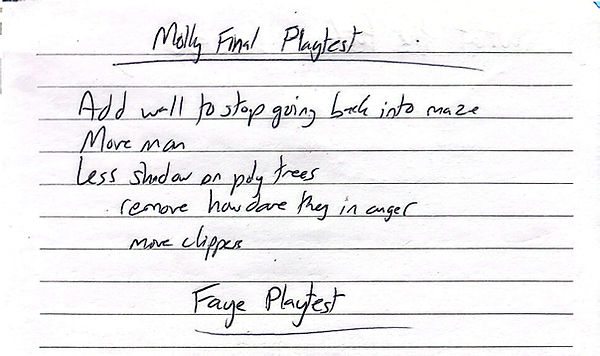 Molly Final Playtest
Add wall to stop going back into maze
Move man
Less shadow on poly trees
remove how dare they in anger
move clippers
Faye Playtest